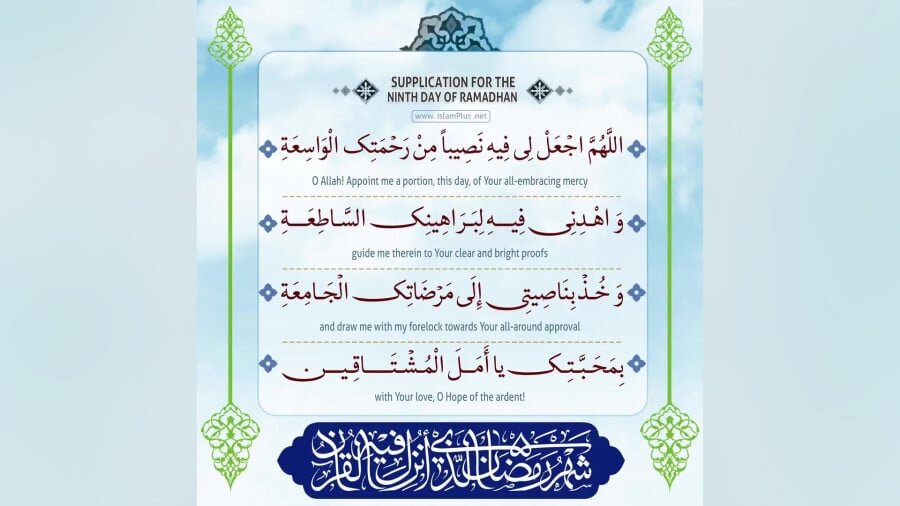 SUPPLICATION FOR THE
NINTH DAY OF RAMADHAN
www. islamPlus .net
اللَّهُمَّ اجْعَلْ لِی فِیهِ نَصِیباً مِنْ رَحْمَتِکَ الْوَاسِعَةِ
O Allah! Appoint me a portion, this day, of Your all-embracing mercy
وَ اهْدِنِی فِیهِ لِبَرَاهِینِکَ السَّاطِعَةِ
guide me therein to Your clear and bright proofs
وَ خُذْ بِنَاصِیَتِی إِلَی مَرْضَاتِکَ الْجَامِعَةِ
and draw me with my forelock towards Your all-around approval
بِمَحَبَّتِکَ یا أَمَلَ الْمُشْتَاقِینَ
with Your love, O Hope of the ardent!
شهر رمضان الذي أنزل فيه القرآن